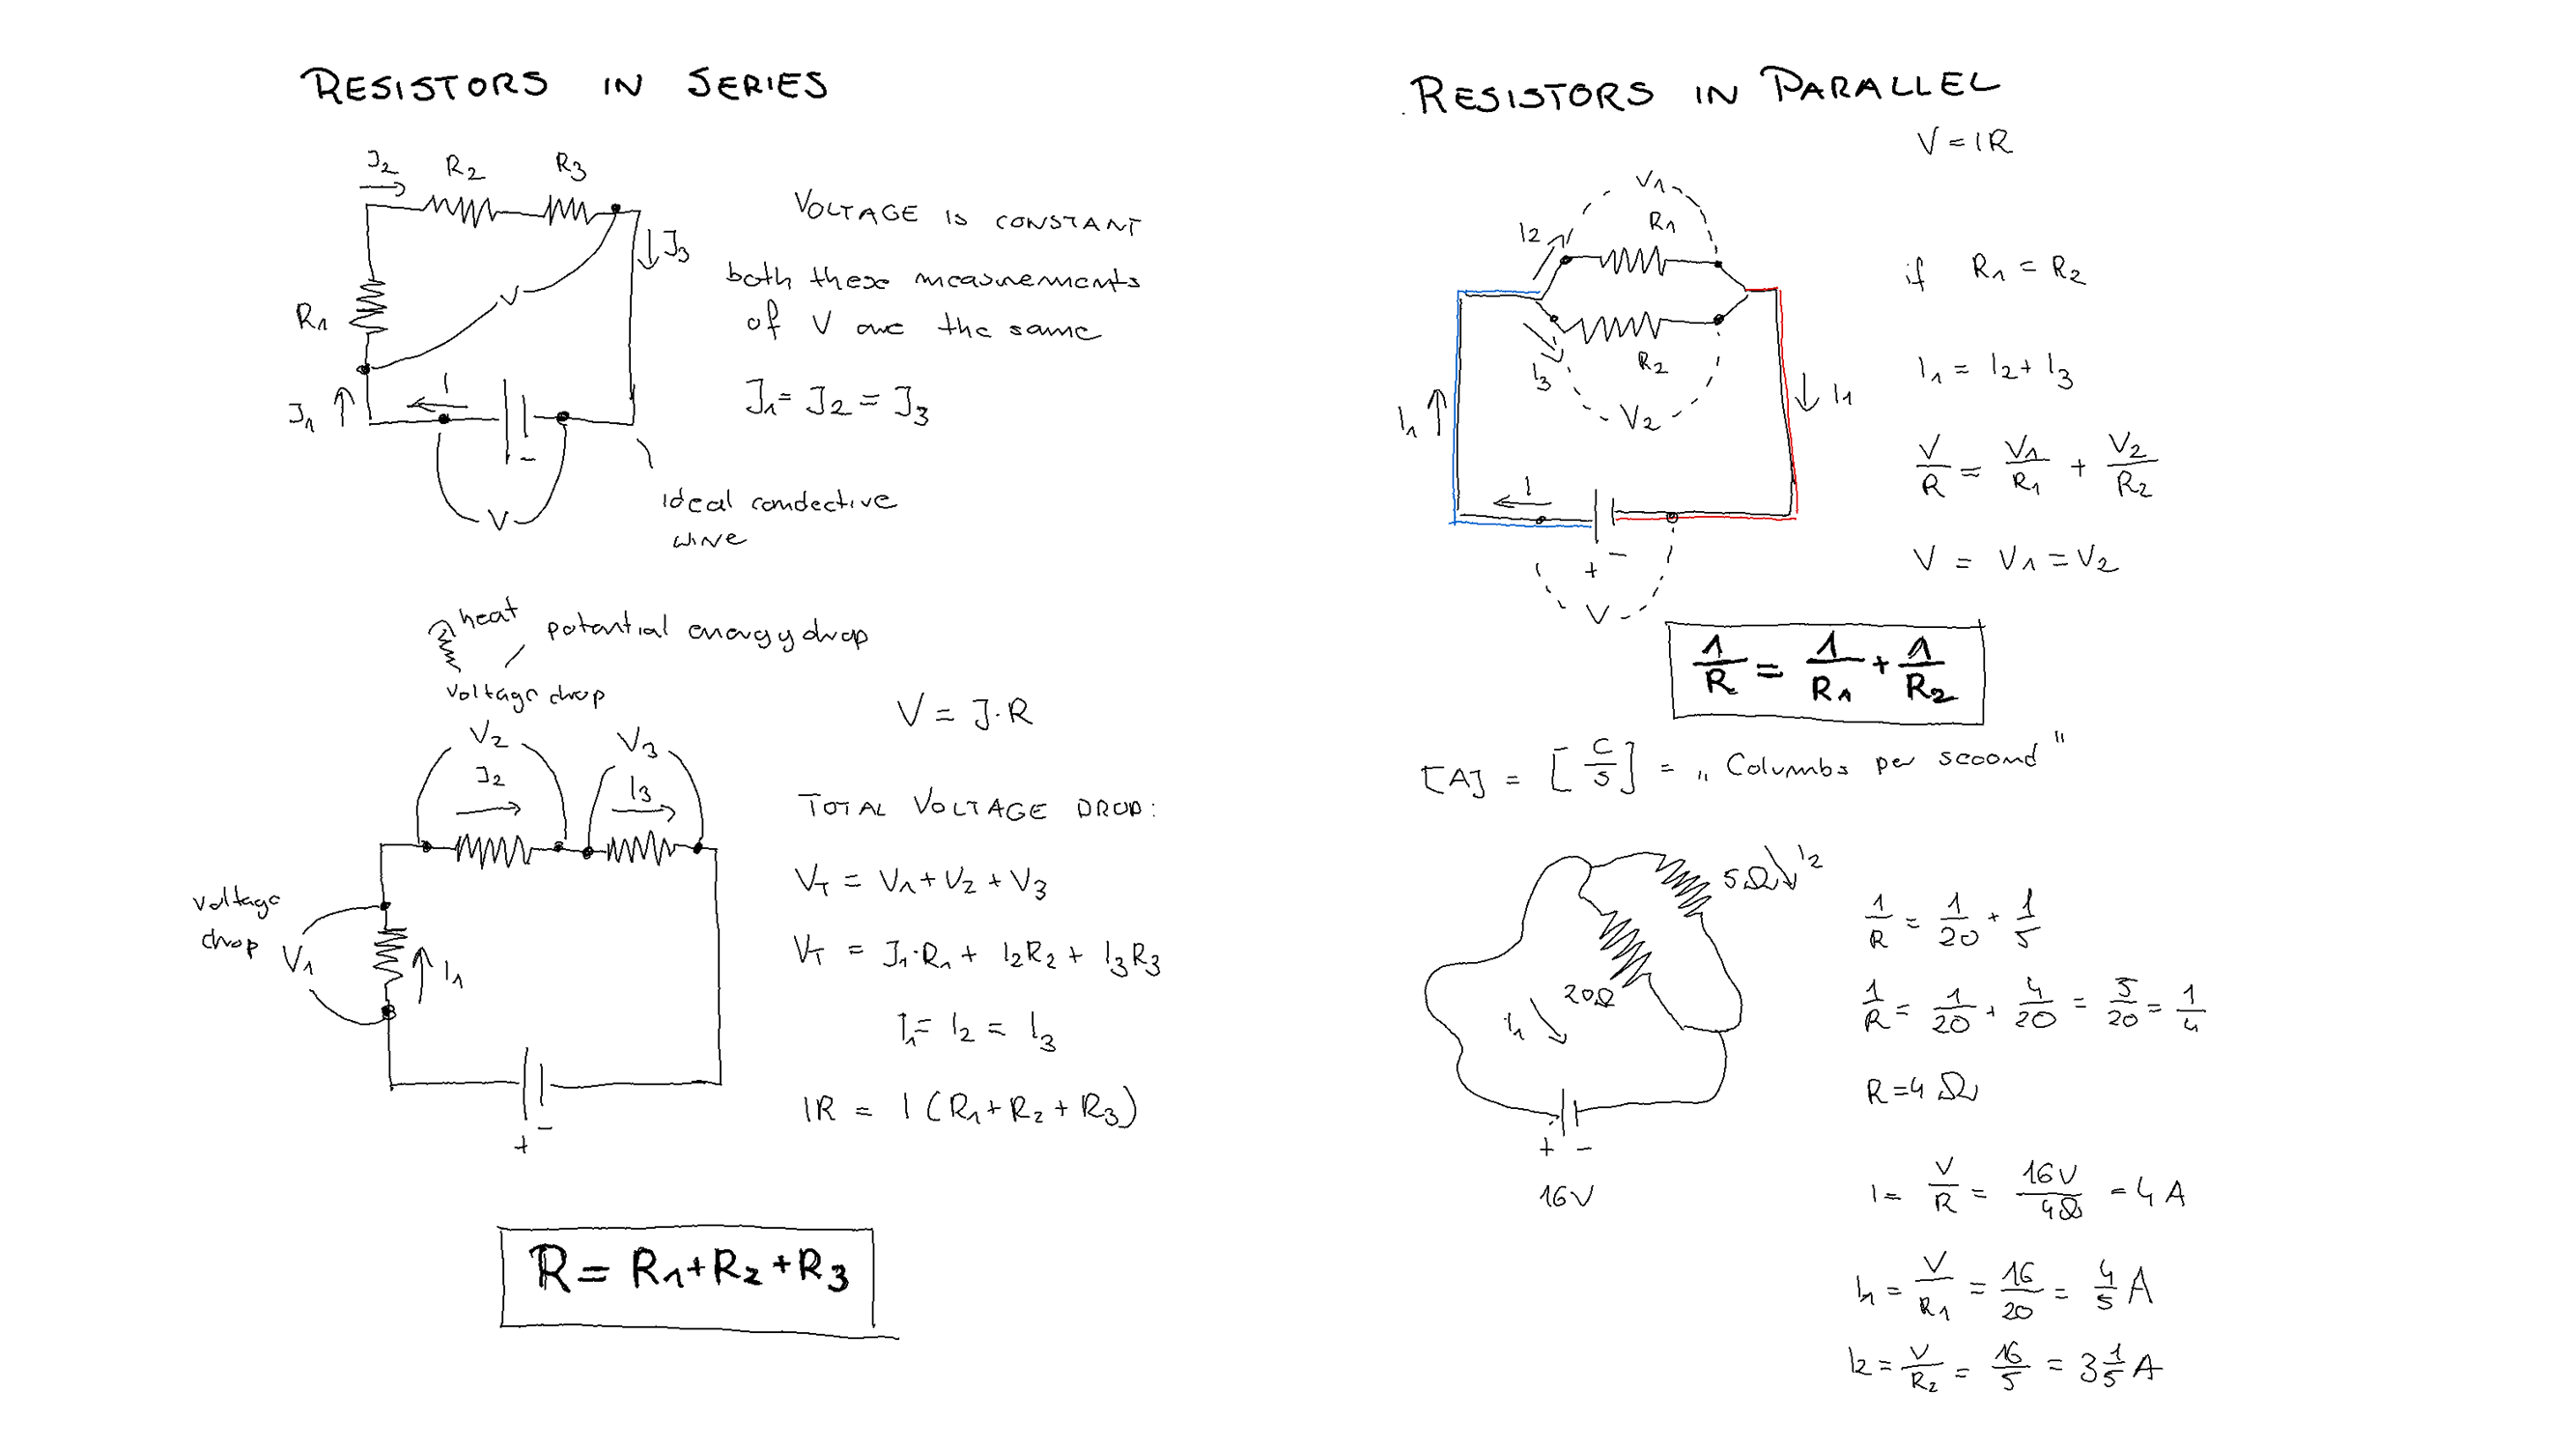 RESISTORS IN SERIES
I2 R2 R3
I3
R1
V
I1
I
-
V
VOLTAGE IS CONSTANT
both these measurements
of V are the same
I1 = I2 = I3
ideal condective
wire
heat
potential energy drop
voltage drop
V2 V3
I2 I3
voltage
drop V1
I1
+ -
V = I·R
TOTAL VOLTAGE DROP:
VT = V1 + V2 + V3
VT = I1·R1 + I2R2 + I3R3
I1 = I2 = I3
IR = I (R1 + R2 + R3)
R = R1 + R2 + R3
RESISTORS IN PARALLEL
V = IR
V1
R1
I2
I3
R2
V2
I1
I1
I
+ -
V
if R1 = R2
I1 = I2 + I3
V/R = V1/R1 + V2/R2
V = V1 = V2
1/R = 1/R1 + 1/R2
[A] = [C/S] = „Columbs per second"
5Ω I2
20Ω
I1
+ -
16V
1/R = 1/20 + 1/5
1/R = 1/20 + 4/20 = 5/20 = 1/4
R = 4 Ω
I = V/R = 16V/4Ω = 4 A
I1 = V/R1 = 16/20 = 4/5 A
I2 = V/R2 = 16/5 = 3 1/5 A